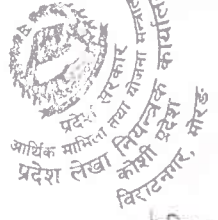 प्रदेश सरकार
आर्थिक मामिला तथा योजना
प्रदेश लेखा नियन्त्रक कार्यालय
कोशी प्रदेश
विराटनगर, मोरङ